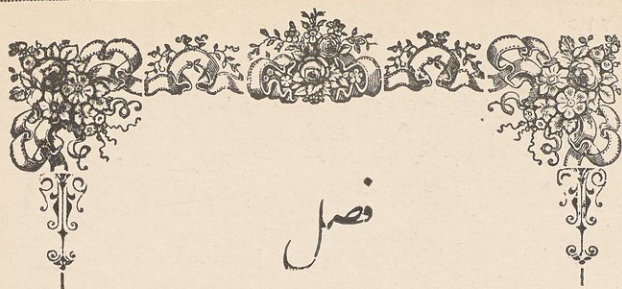 فصل